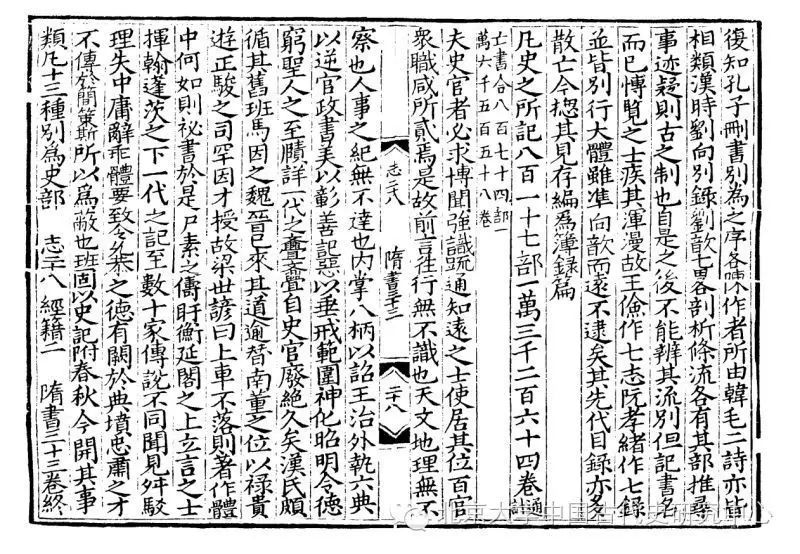 復知孔子刪書別為之序各陳作者所由韓毛二詩亦皆
相類漢時劉向別錄劉歆七畧剖析條流各有其部推尋
事迹疑則古之制也自是之後不能辨其流別但記書名
而已博覽之士疾其渾漫故王儉作七志阮孝緒作七錄
並皆別行大體雖準向歆而遠不逮矣其先代目錄亦多
散亡今揔其見存編爲簿錄篇
凡史之所記八百一十七部一萬三千二百六十四卷通計
亡書合八百七十四部一
萬六千五百五十八卷
夫史官者必求博聞強識疏通知遠之士使居其位百官
衆職咸所貳焉是故前言往行無不識也天文地理無不
志二八 隋書三十三 二十八
察也人事之紀無不達也內掌八柄以詔王治外執六典
以逆官政書美以彰善記惡以垂戒範圍神化昭明令德
窮聖人之至賾詳一代之亹亹自史官廢絕久矣漢氏頗
循其舊班馬因之魏晉已來其道逾替南董之位以祿貴
遊正駿之司罕因才授故梁世諺曰上車不落則著作體
中何如則祕書於是尸素之儔盱衡延閣之上立言之士
揮翰蓬茨之下一代之記至數十家傳說不同聞見舛駮
理失中庸辭乖體要致令允恭之德有闕於典墳忠肅之才
不傳於簡策斯所以爲蔽也班固以史記附春秋今開其事
類凡十三種別爲史部 志二八 經籍二 隋書三十三卷終
北京大学中国古代史研究中心